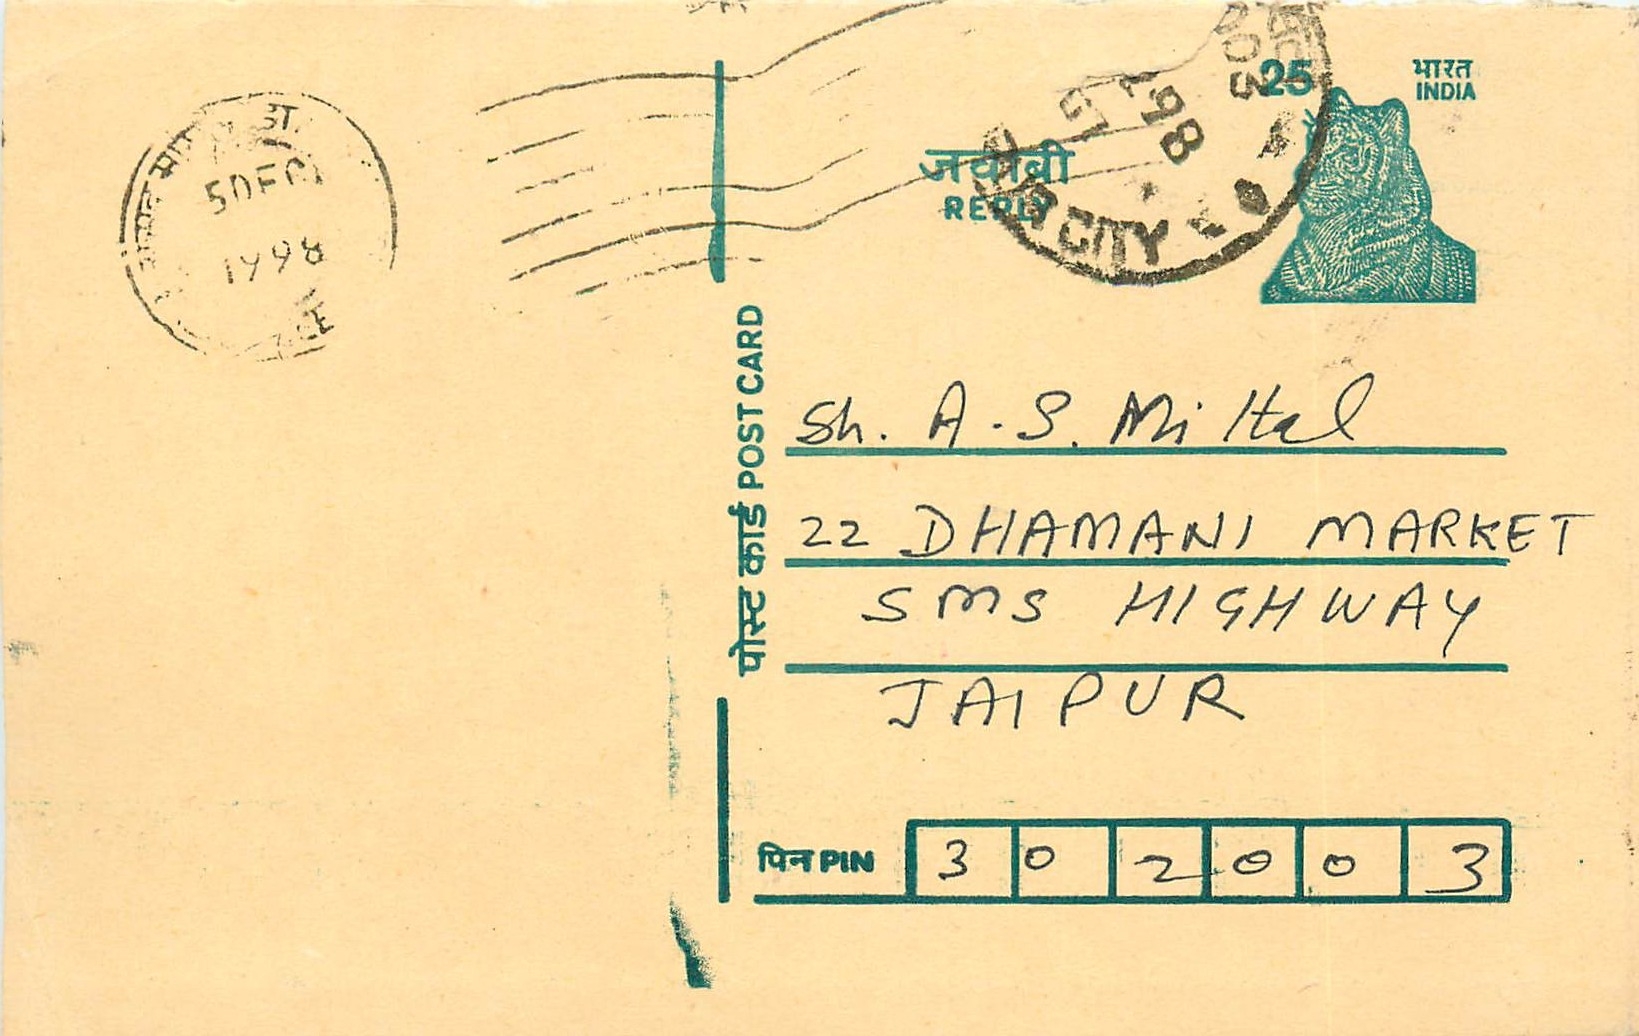 5 DEC
1998
25
भारत
INDIA
जवाबी
REPLY
CITY
पोस्ट कार्ड POST CARD
Sh. A.S. Mittal
22 DHAMANI MARKET
SMS HIGHWAY
JAIPUR
पिन PIN 3 0 2 0 0 3